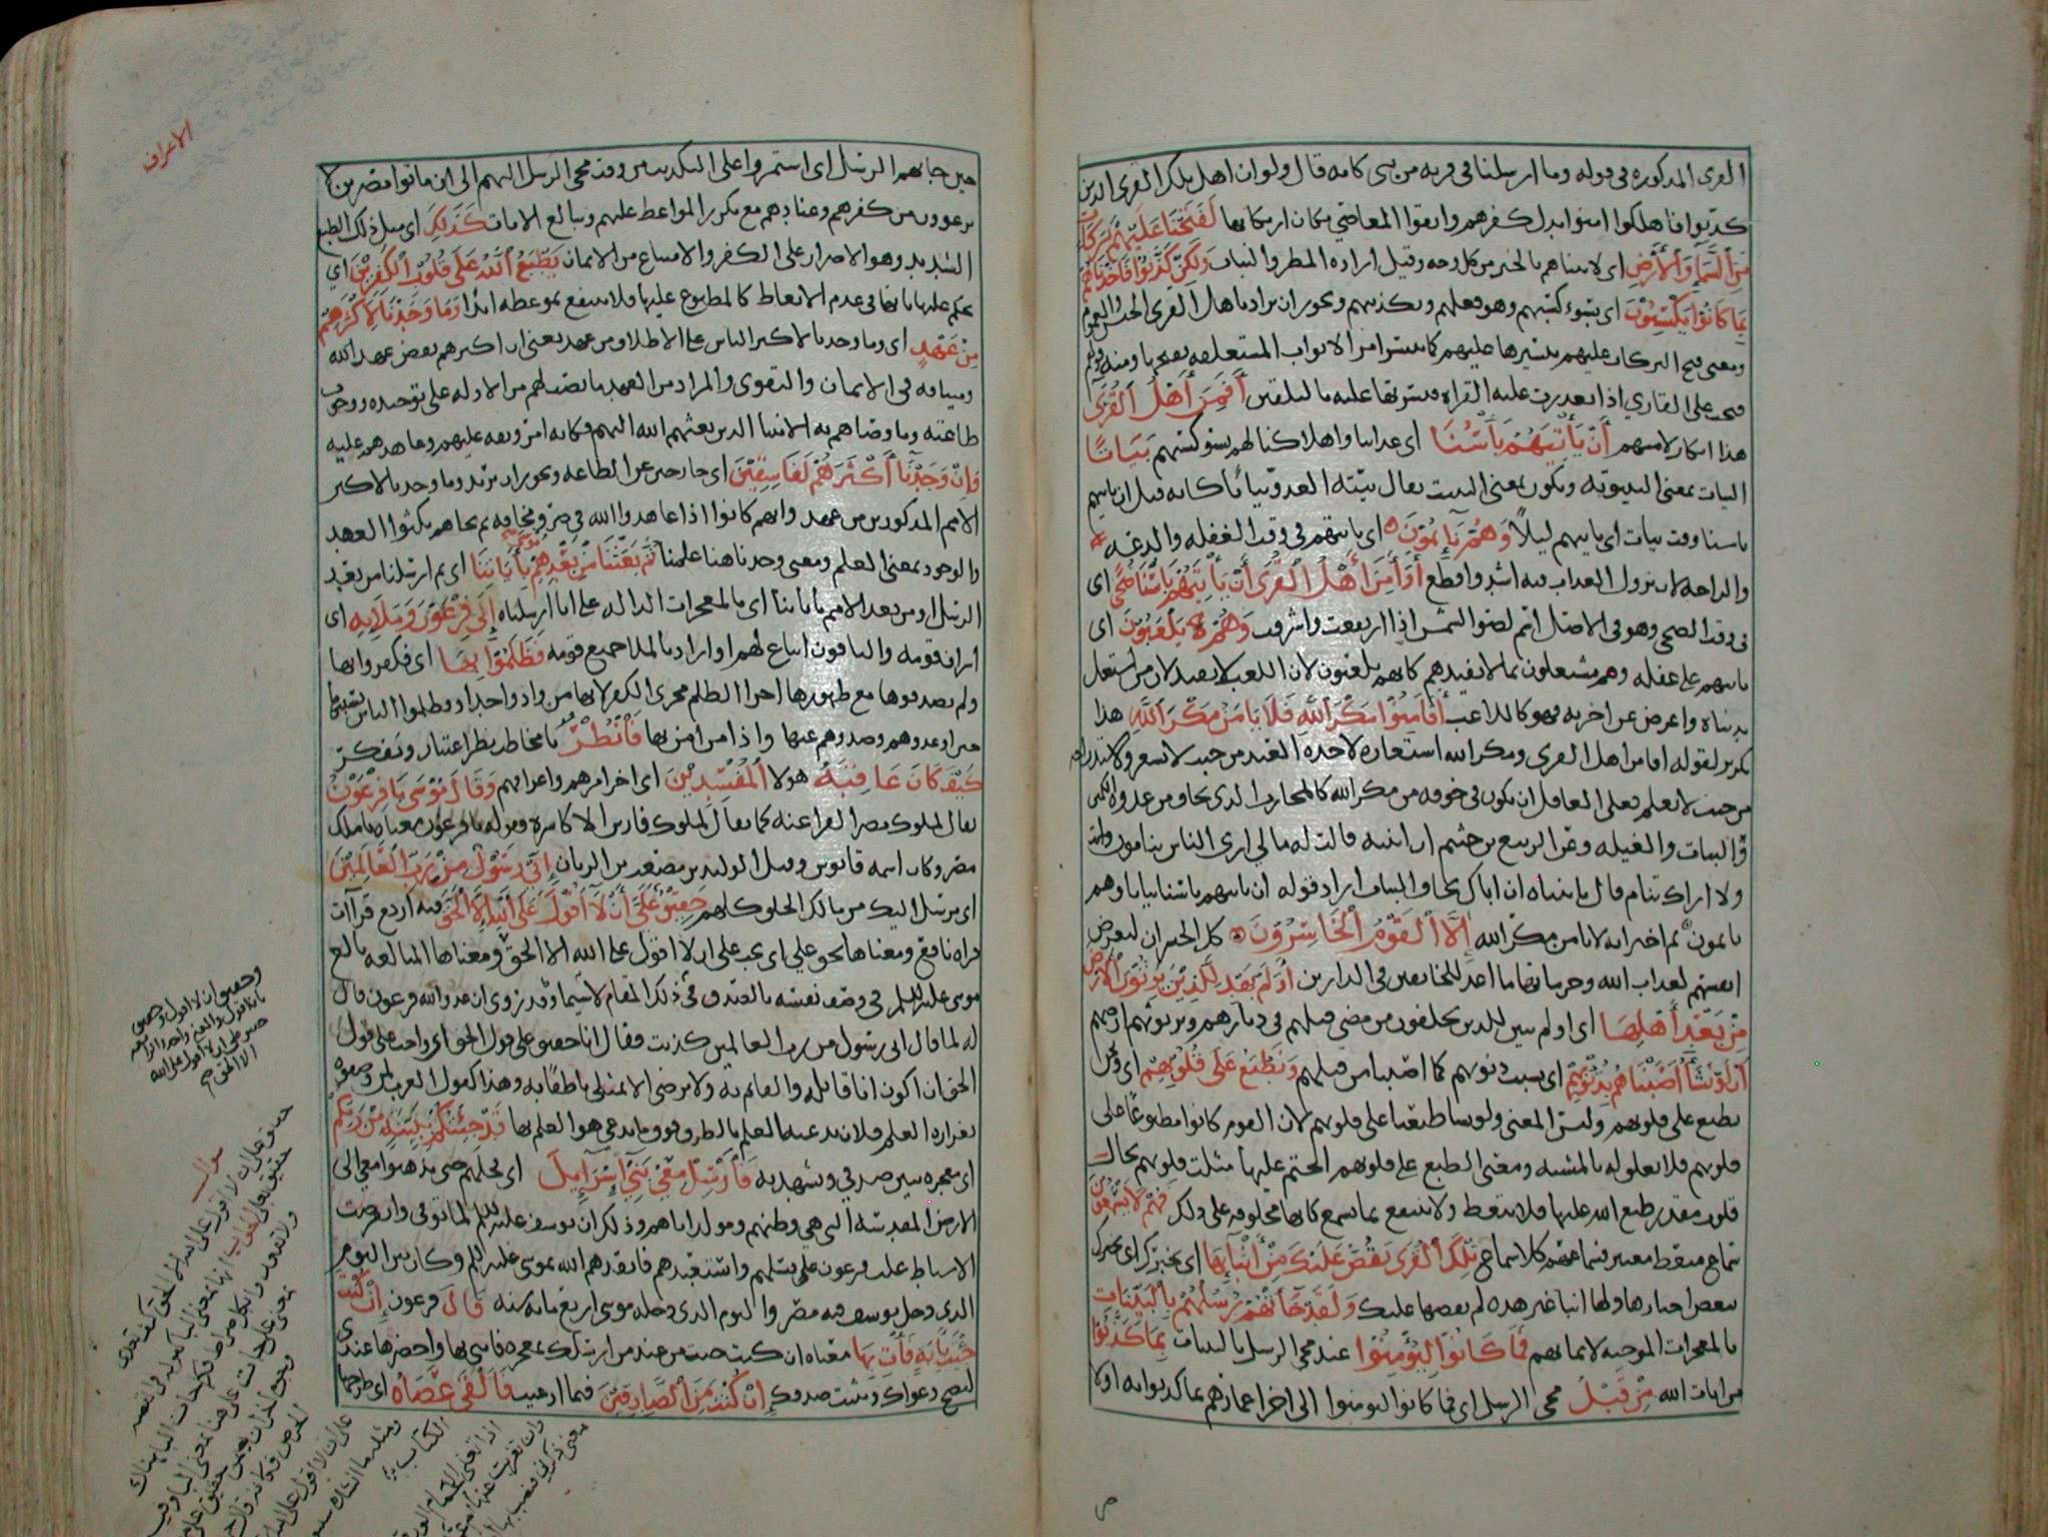 القرى المذكوره في قوله وما ارسلنا في قريه من نبي كانه قال ولو ان اهل تلك القرى الذين
كذبوا فاهلكوا امنوا بدل كفرهم واتقوا المعاصي مكان ارتكابها لَفَتَحْنَا عَلَيْهِمْ بَرَكَاتٍ
مِنَ السَّمَاءِ وَالْأَرْضِ اى لاتيناهم بالخير من كل وجه وقيل اراد المطر والنبات وَلَكِنْ كَذَّبُوا فَأَخَذْنَاهُمْ
بِمَا كَانُوا يَكْسِبُوْنَ اى بسوء كسبهم وهو فعلهم وتكذيبهم ويجوز ان يراد باهل القرى الجنس والعموم
ومعنى فتح البركات عليهم تيسيرها عليهم كما تيسر امر الابواب المستغلقه بفتحها ومنه قولهم
فتح على القاري اذا تعذرت عليه القراه فيسرتها عليه بالتلقين أَفَأَمِنَ أَهْلُ الْقُرَى
هذا انكار لامنهم أَنْ يَأْتِيَهُمْ بَأْسُنَا اى عذابنا واهلاكنا لهم بسو كسبهم بَيَاتًا
البيات بمعنى البيتوته ويكون بمعنى التبييت يقال بيته العدو بياتًا كانه قيل ان ياتيهم
باسنا وقت بيات اى ياتيهم ليلاً وَهُمْ نَآئِمُوْنَ اى ياتيهم في وقت الغفله والدعه
والراحه لان نزول العذاب فيه اشد وافظع أَوَأَمِنَ أَهْلُ الْقُرَى أَنْ يَأْتِيَهُمْ بَأْسُنَا ضُحًى اى
في وقت الضحى وهو في الاصل اسم لضو الشمس اذا ارتفعت واشرقت وَهُمْ يَلْعَبُوْنَ اى
ياتيهم على غفله وهم مشتغلون بما لا يفيدهم كانهم يلعبون لان اللعب لا يفيد لان من اشتغل
بدنياه واعرض عن اخرته فهو كاللاعب أَفَأَمِنُوْا مَكْرَ اللَّهِ فَلَا يَأْمَنُ مَكْرَ اللَّهِ هذا
تكرير لقوله افامن اهل القرى ومكر الله استعاره لاخذه العبد من حيث لا يشعر ولاستدراجه
من حيث لا يعلم فعلى العاقل ان يكون في خوفه من مكر الله كالمحارب الذي يخاف من عدوه الكمين
والبيات والغيله وعن الربيع بن خثيم ان ابنته قالت له مالي ارى الناس ينامون
ولا اراك تنام قال يا بنتاه ان اباك يخاف البيات اراد قوله ان ياتيهم باسنا بياتا وهم
نايمون ثم اخبر انه لا يامن مكر الله إِلَّا الْقَوْمُ الْخَاسِرُوْنَ كل الخسران لتعريض
انفسهم لعذاب الله وحرمانها ما اعد للخائفين في الدارين أَوَلَمْ يَهْدِ لِلَّذِيْنَ يَرِثُوْنَ الْأَرْضَ
مِنْ بَعْدِ أَهْلِهَا اى اولم يبين للذين يخلفون من مضى قبلهم في ديارهم ويرثونهم ارضهم
أَنْ لَوْ نَشَاءُ أَصَبْنَاهُمْ بِذُنُوْبِهِمْ اى بسبب ذنوبهم كما اصبنا من قبلهم وَنَطْبَعُ عَلَى قُلُوْبِهِمْ اى ونحن
نطبع على قلوبهم وليس المعنى ولو نشا طبعنا على قلوبهم لان القوم كانوا مطبوعًا على
قلوبهم فلا تعلق له بالمشيه ومعنى الطبع على قلوبهم الختم عليها مثلت قلوبهم بحال
قلوب مقدر طبع الله عليها فلا تتعظ ولا تنتفع بما تسمع كانها مخلوقه على ذلك فَهُمْ لَا يَسْمَعُوْنَ
سماع متعظ معتبر فسماعهم كلا سماع تِلْكَ الْقُرَى نَقُصُّ عَلَيْكَ مِنْ أَنْبَآئِهَا اى نخبرك
ببعض اخبارها ولها انبا غير هذه لم نقصها عليك وَلَقَدْ جَاءَتْهُمْ رُسُلُهُمْ بِالْبَيِّنَاتِ
بالمعجزات الموجبه لايمانهم فَمَا كَانُوْا لِيُؤْمِنُوْا عند مجي الرسل بالبينات بِمَا كَذَّبُوْا
من ايات الله مِنْ قَبْلُ مجي الرسل اى فما كانوا ليومنوا الى اخر اعمارهم بما كذبوا به اولا
الاعراف
حين جاءهم الرسل اى استمروا على التكذيب من وقت مجي الرسل اليهم الى ان ماتوا مصرين لا
يرعوون من كفرهم وعنادهم مع تكرير المواعظ عليهم وتتابع الايات كَذَلِكَ اى مثل ذلك الطبع
الشديد وهو الاصرار على الكفر والامتناع من الايمان يَطْبَعُ اللَّهُ عَلَى قُلُوْبِ الْكَافِرِيْنَ اى
يحكم عليها بانها في عدم الاتعاظ كالمطبوع عليها فلا تنتفع بموعظه ابدا وَمَا وَجَدْنَا لِأَكْثَرِهِمْ
مِنْ عَهْدٍ اى وما وجدنا لاكثر الناس على الاطلاق من عهد يعني ان اكثرهم نقض عهد الله
وميثاقه في الايمان والتقوى والمراد من العهد ما نصب لهم من الادله على توحيده ووجوب
طاعته وما وصاهم به الانبيا الذين بعثهم الله اليهم فكانه امر وقفه عليهم وعاهدهم عليه
وَإِنْ وَجَدْنَا أَكْثَرَهُمْ لَفَاسِقِيْنَ اى خارجين عن الطاعه ويجوز ان يريد وما وجدنا لاكثر
الامم المذكورين من عهد وانهم كانوا اذا عاهدوا الله في ضر ومخافه ثم نجاهم نكثوا العهد
والوجود بمعنى العلم ومعنى وجدنا هنا علمنا ثُمَّ بَعَثْنَا مِنْ بَعْدِهِمْ مُوسَى بِآيَاتِنَا اى ثم ارسلنا من بعد
الرسل او من بعد الامم باياتنا اى بالمعجزات الداله على انا ارسلناه إِلَى فِرْعَوْنَ وَمَلَائِهِ اى
اشراف قومه والباقون اتباع لهم او اراد بالملا جميع قومه فَظَلَمُوْا بِهَا اى فكفروا بها
ولم يصدقوها مع ظهورها اجرا الظلم مجرى الكفر لانهما من واد واحد او فظلموا الناس بسببها
حين اوعدوهم وصدوهم عنها واذا من امن بها فَانْظُرْ يا مخاطب نظر اعتبار وتفكر
كَيْفَ كَانَ عَاقِبَةُ هولا الْمُفْسِدِيْنَ اى اخر امرهم واغراقهم وَقَالَ مُوْسَى يَا فِرْعَوْنُ
يقال لملوك مصر الفراعنه كما يقال لملوك فارس الاكاسره وقوله يا فرعون معناه يا ملك
مصر وكان اسمه قابوس وقيل الوليد بن مصعب بن الريان إِنِّي رَسُوْلٌ مِنْ رَبِّ الْعَالَمِيْنَ
اى مرسل اليك من مالك الخلق كلهم حَقِيْقٌ عَلَيَّ أَنْ لَا أَقُوْلَ عَلَى اللَّهِ إِلَّا الْحَقَّ فيه اربع قرآات
قراه نافع ومعناها يحق علي اى يجب علي ان لا اقول على الله الا الحق ومعناها المبالغه بالغ
موسى عليه السلم في وصف نفسه بالصدق في ذلك المقام لاسيما وقد روى ان عدو الله فرعون قال
له لما قال اني رسول من رب العالمين كذبت فقال انا حقيق على قول الحق اى واجب على قول
الحق ان اكون انا قائله والقايم به ولا يرضى الا بمثلي ناطقًا به وهذا كقول العرب لمن وصفوه
بغزاره العلم فلان يدعيه العلم بالطروق وما يدعي هو العلم بها قَدْ جِئْتُكُمْ بِبَيِّنَةٍ مِنْ رَبِّكُمْ
اى معجزه تبين صدقي وتشهد به فَأَرْسِلْ مَعِيَ بَنِيْ إِسْرَآئِيْلَ اى فخلهم حتى يذهبوا معي الى
الارض المقدسه التي هي وطنهم ومولد اباهم وذلك ان يوسف عليه السلم لما توفى وانقرضت
الاسباط غلب فرعون على نسلهم واستعبدهم فانقذهم الله بموسى عليه السلم وكان بين اليوم
الذى دخل يوسف فيه مصر واليوم الذى دخله موسى اربع مايه سنه قَالَ فرعون إِنْ كُنْتَ
جِئْتَ بِآيَةٍ فَأْتِ بِهَا معناه ان كنت جئت من عند من ارسلك بمعجزه فاتني بها واحضرها عندى
لتصح دعواك ويثبت صدقك إِنْ كُنْتَ مِنَ الصَّادِقِيْنَ فيما ادعيت فَأَلْقَى عَصَاهُ اى طرحها